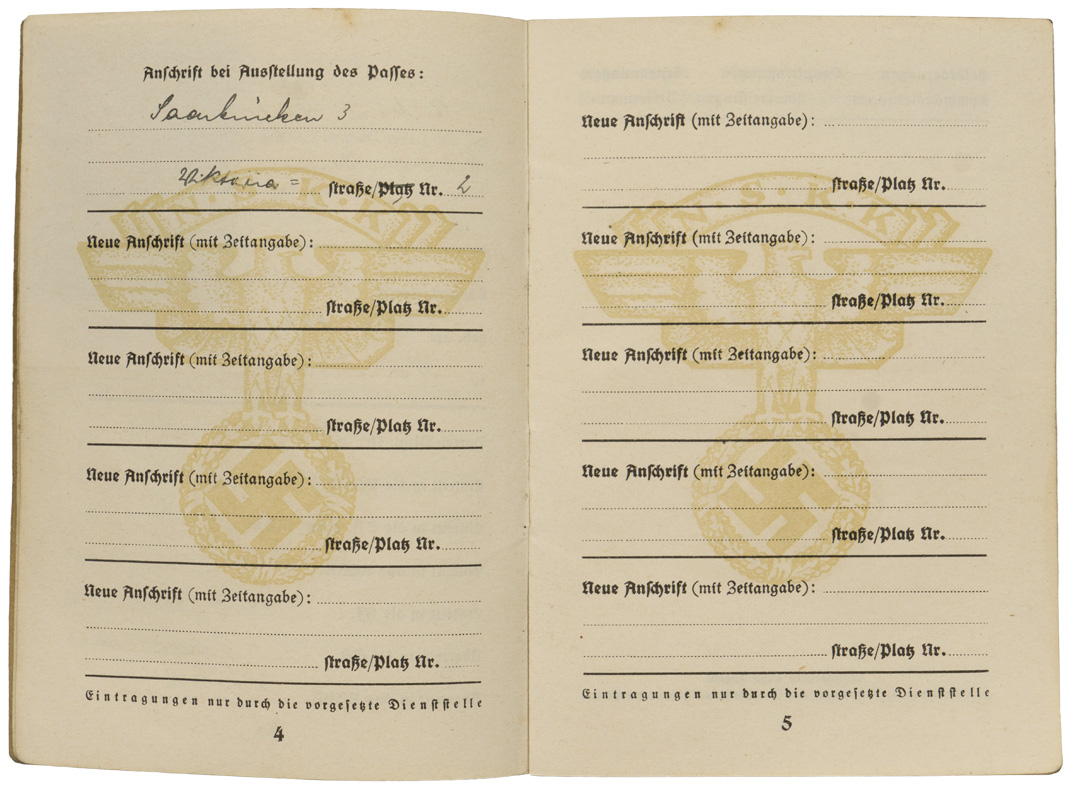 Anschrift bei Ausstellung des Passes:
Saarbrücken 3
Viktoria= straße/Platz Nr. 2
Neue Anschrift (mit Zeitangabe):
straße/Platz Nr.
Neue Anschrift (mit Zeitangabe):
straße/Platz Nr.
Neue Anschrift (mit Zeitangabe):
straße/Platz Nr.
Neue Anschrift (mit Zeitangabe):
straße/Platz Nr.
Eintragungen nur durch die vorgesetzte Dienststelle
4
N.S.K.K.
Neue Anschrift (mit Zeitangabe):
straße/Platz Nr.
Neue Anschrift (mit Zeitangabe):
straße/Platz Nr.
Neue Anschrift (mit Zeitangabe):
straße/Platz Nr.
Neue Anschrift (mit Zeitangabe):
straße/Platz Nr.
Neue Anschrift (mit Zeitangabe):
straße/Platz Nr.
Eintragungen nur durch die vorgesetzte Dienststelle
5
N.S.K.K.